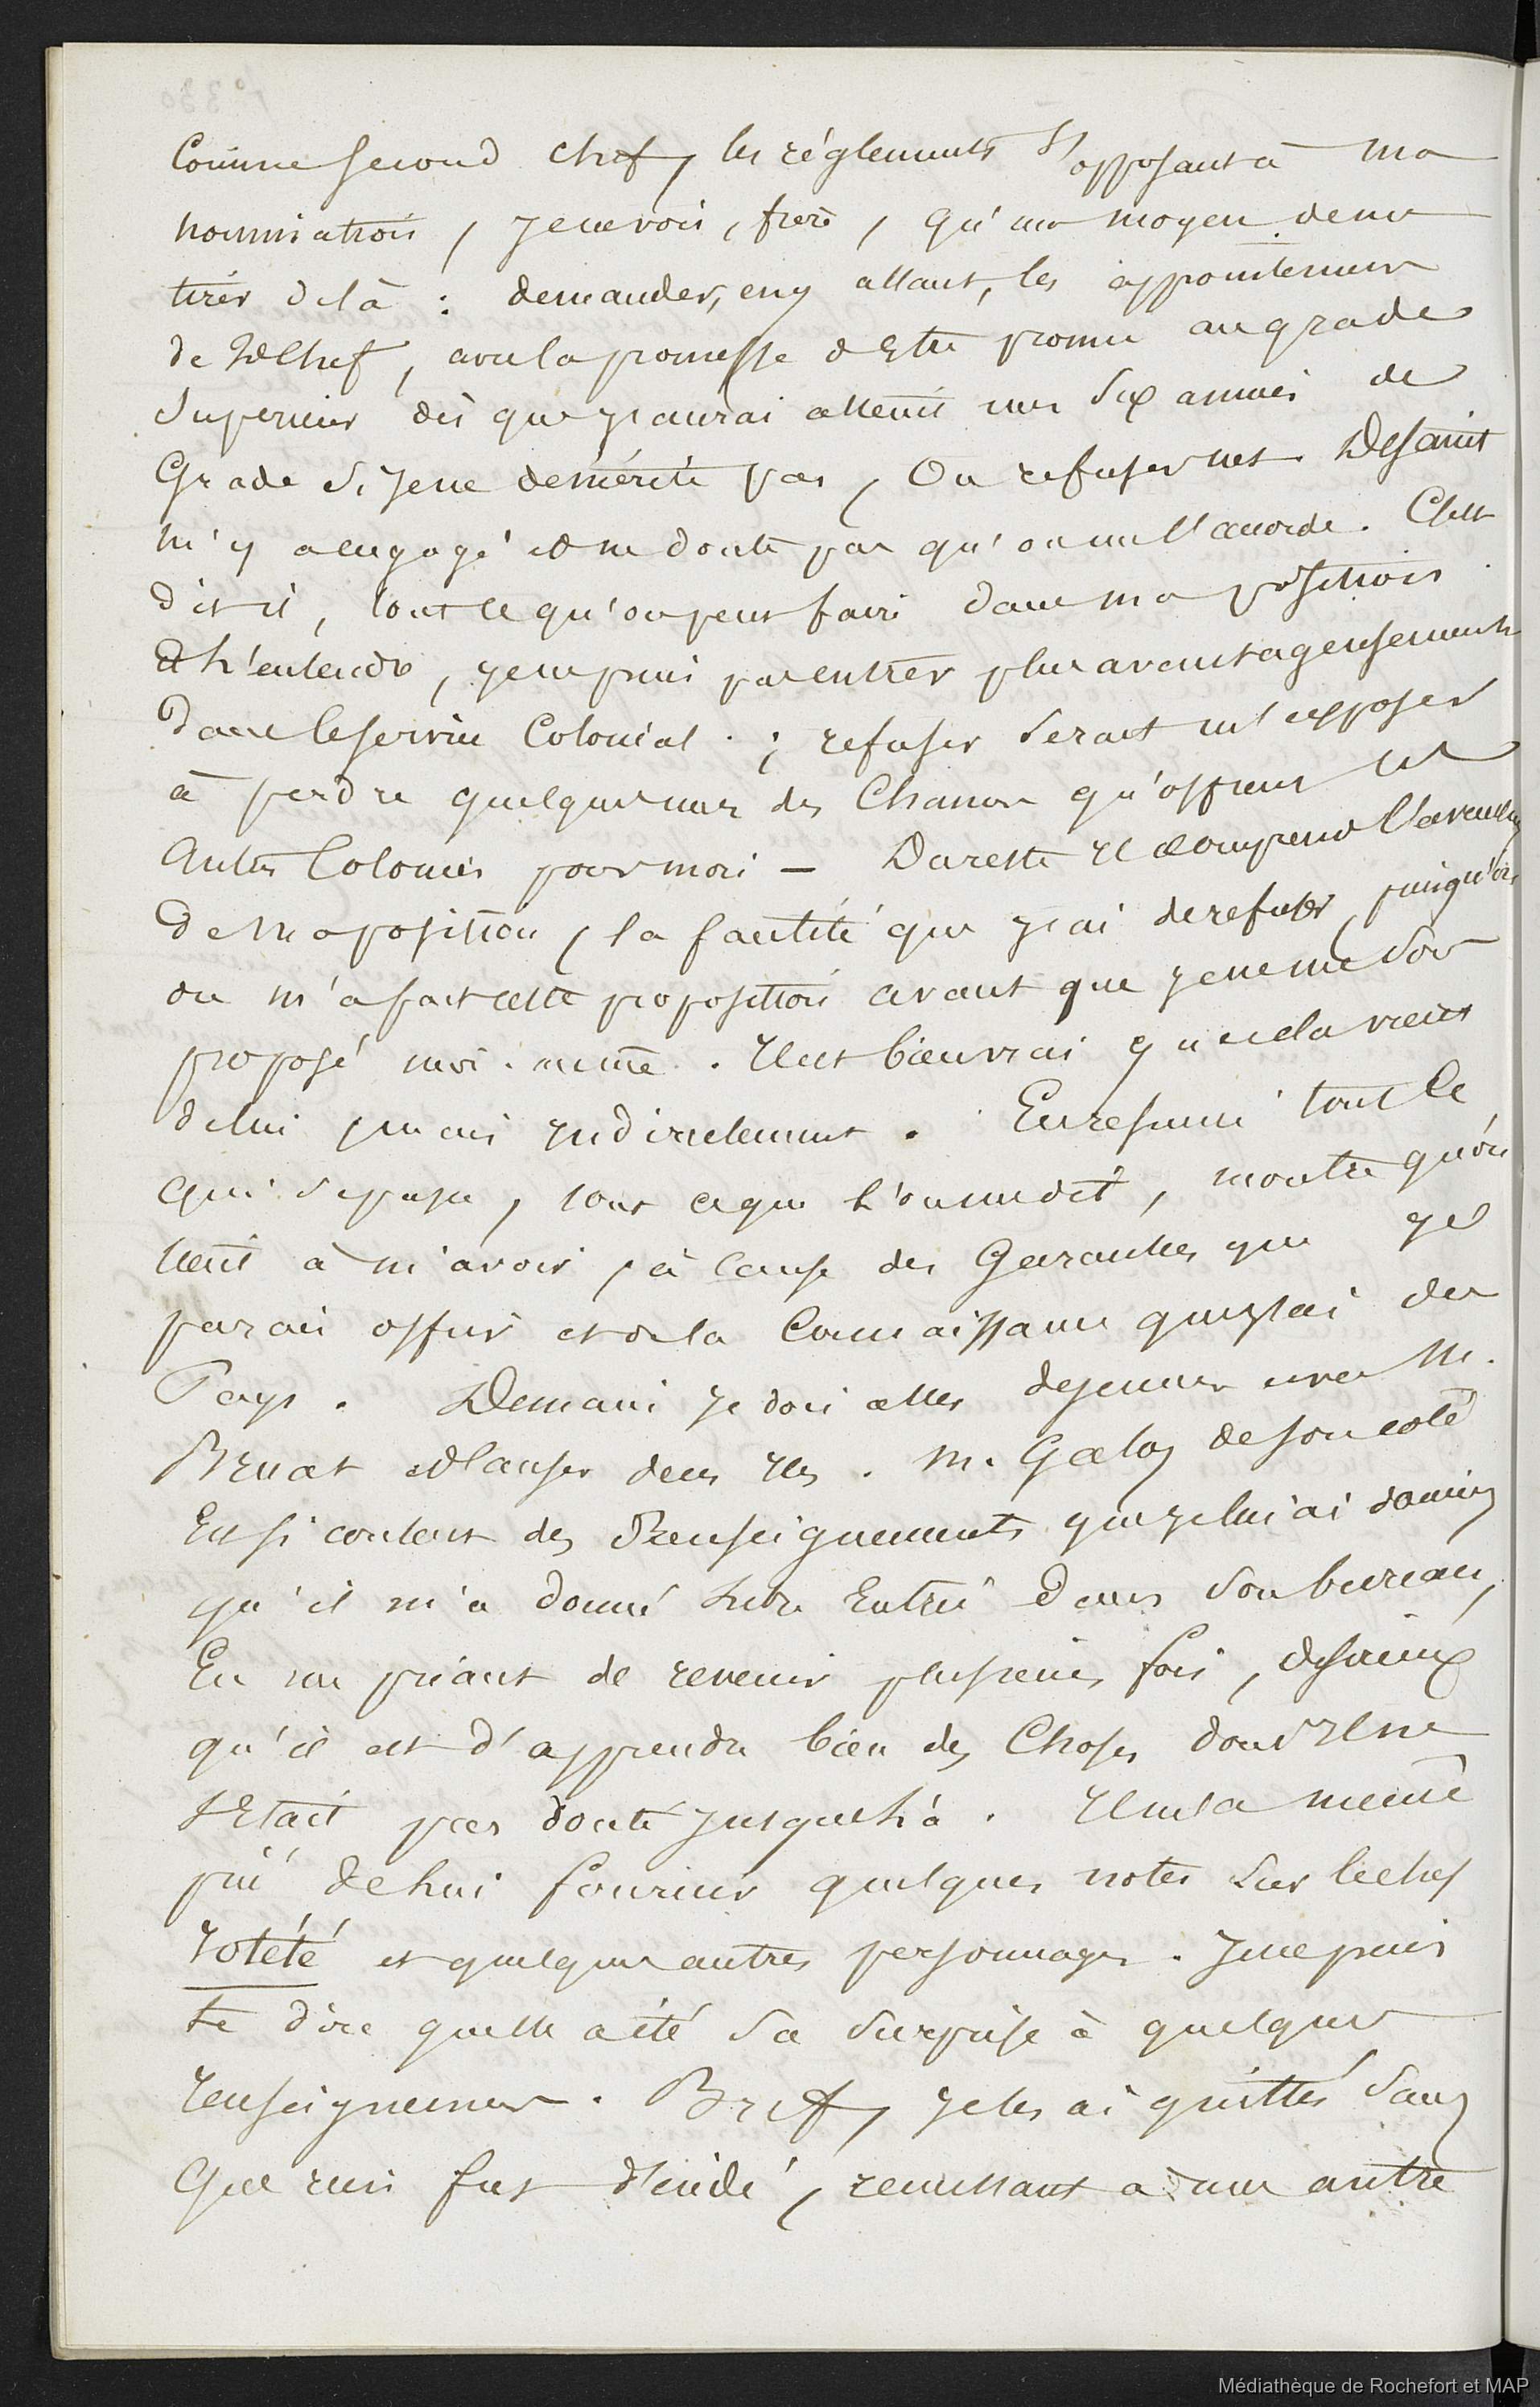 Comme second chef, les réglements s'opposant à ma
nomination, je ne vois, frère, qu'un moyen de me
tirer de là : demander, en y allant, les appointemens
de 2d chef, avec la promesse d'Etre promu au grade
Superieur dès que j'aurai atteint mes Six années de
Grade Si je ne démérite pas, Ou refuser net. Desaint
m'y a engagé et ne doute pas qu'on me l'accorde. C'est
dit-il, tout ce qu'on peut faire dans ma position.
A l'entendre, je ne puis pas entrer plus avantageusement
dans le service Colonial ; refuser serait m'exposer
à perdre quelques unes des Chances qu'offrent les
Autres Colonies pour moi — Du reste Il a compris l'avantage
de ma position, la facilité que j'ai de refuser, puisqu'on
on m'a fait cette proposition avant que je ne me sois
proposé moi-même. Il est bien vrai que cela vient
de lui mais indirectement. En resumé tout ce
qui se passe, tout ce que l'on me dit, montre qu'on
tient à m'avoir, à cause des Garanties que je
parais offrir et de la Connaissance que j'ai du
Pays. Demain je dois aller dejeuner avec M.
Bruat et causer des Iles. M. Galos de son coté
Est si content des Renseignements que je lui ai donnés
qu'il m'a donné libre Entrée dans son bureau,
En me priant de revenir plusieurs fois, desireux
qu'il est d'apprendre bien des Choses dont Il ne
s'Etait pas douté jusque là. Il m'a même
prié de lui fournir quelques notes sur le chef
Iotété et quelques autres personnages. Je ne puis
te dire quelle a été sa surprise à quelques
renseignemens. Bref, je les ai quittés sans
que rien fut décidé, remettant à une autre
Médiathèque de Rochefort et MAP